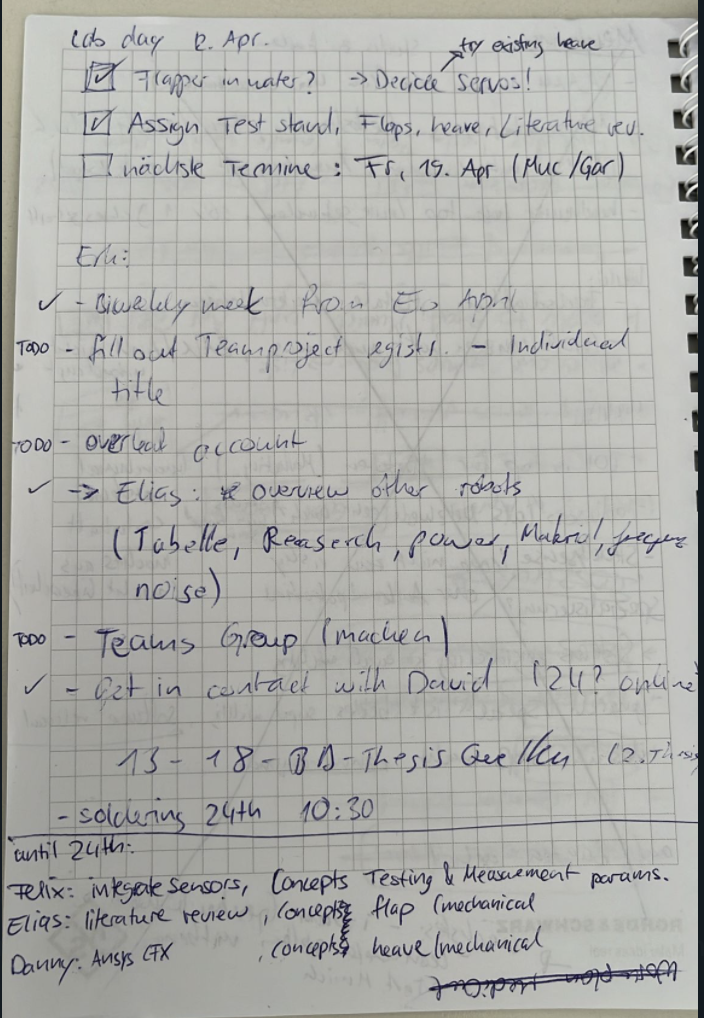 Lab day 12. Apr.
try existing heave
Flapper in water? → Decide Servos!
Assign Test stand, Flaps, heave, Literature rev.
nächste Termine: Fr, 19. Apr (Muc/Gar)
Erh:
✓ - Biweekly meek from Eo April
TODO - fill out Teamproject egists. - Individual
title
TODO - overleaf account
✓ -> Elias: overview other robots
(Tabelle, Reaserch, power, Matrial, frequenz
noise)
TODO - Teams Group (machen)
✓ - Get in contact with David (24? online
13-18- BA-Thesis Quellen (2. Thesis
- soldering 24th 10:30
until 24th:
Felix: integrate sensors, Concepts Testing & Measurement params.
Elias: literature review, concepts flap (mechanical
Danny: Ansys CFX, concepts heave (mechanical